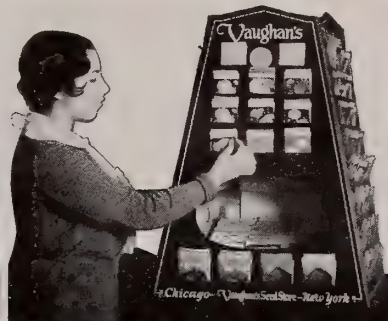 Vaughan's
Chicago - Vaughan's Seed Store - New York